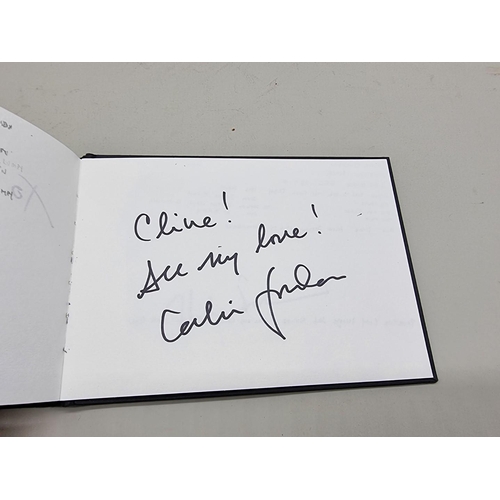 Clive!
All my love!
Leslie Jordan